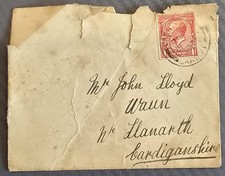 Mr John Lloyd
Waun
Nr Llanarth
Cardiganshire